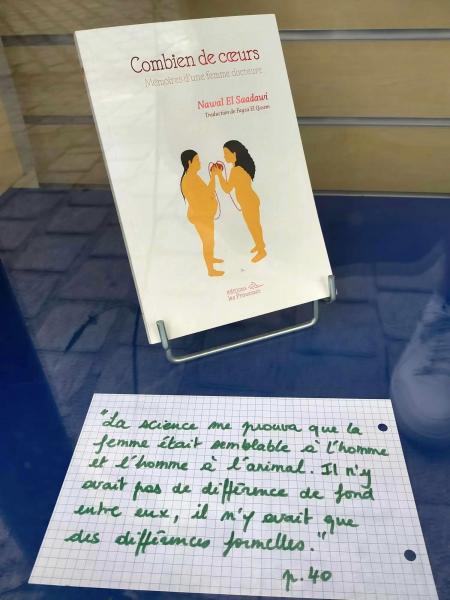 Combien de cœurs
Mémoires d'une femme docteure
Nawal El Saadawi
Traduction de Fayza El Qasem
éditions
les Prouesses
"La science me prouva que la
femme était semblable à l'homme
et l'homme à l'animal. Il n'y
avait pas de différence de fond
entre eux, il n'y avait que
des différences formelles."
p. 40